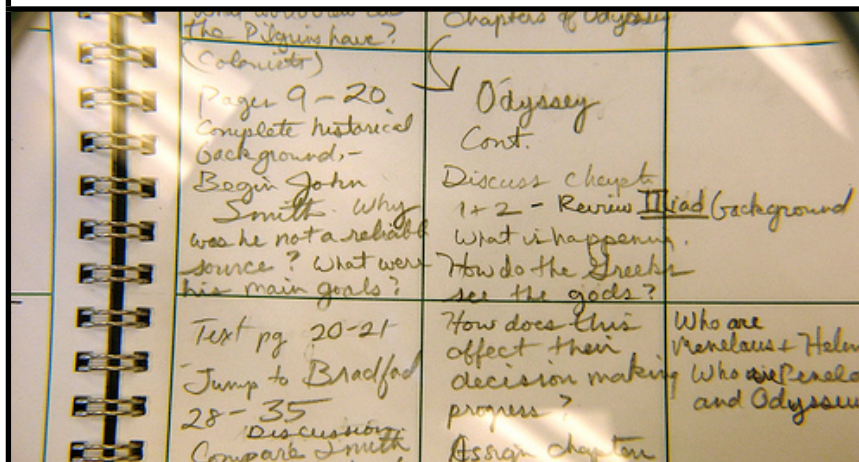 the Pilgrims have?
(Colonists)
Pages 9-20
Complete historical
background,-
Begin John
Smith. Why
was he not a reliabl
source? What were
his main goals?
Text pg 20-21
Jump to Bradford
28-35
Discussion
Compare Smith
Chapters of Odyssey
Odyssey
Cont.
Discuss chapt.
1+2 - Review Iliad background
What is happenin.
How do the Greeks
see the gods?
How does this
affect their
decision making
progress?
Assign chapters
Who are
Menelaus + Helen
Who are Penelo
and Odysseu